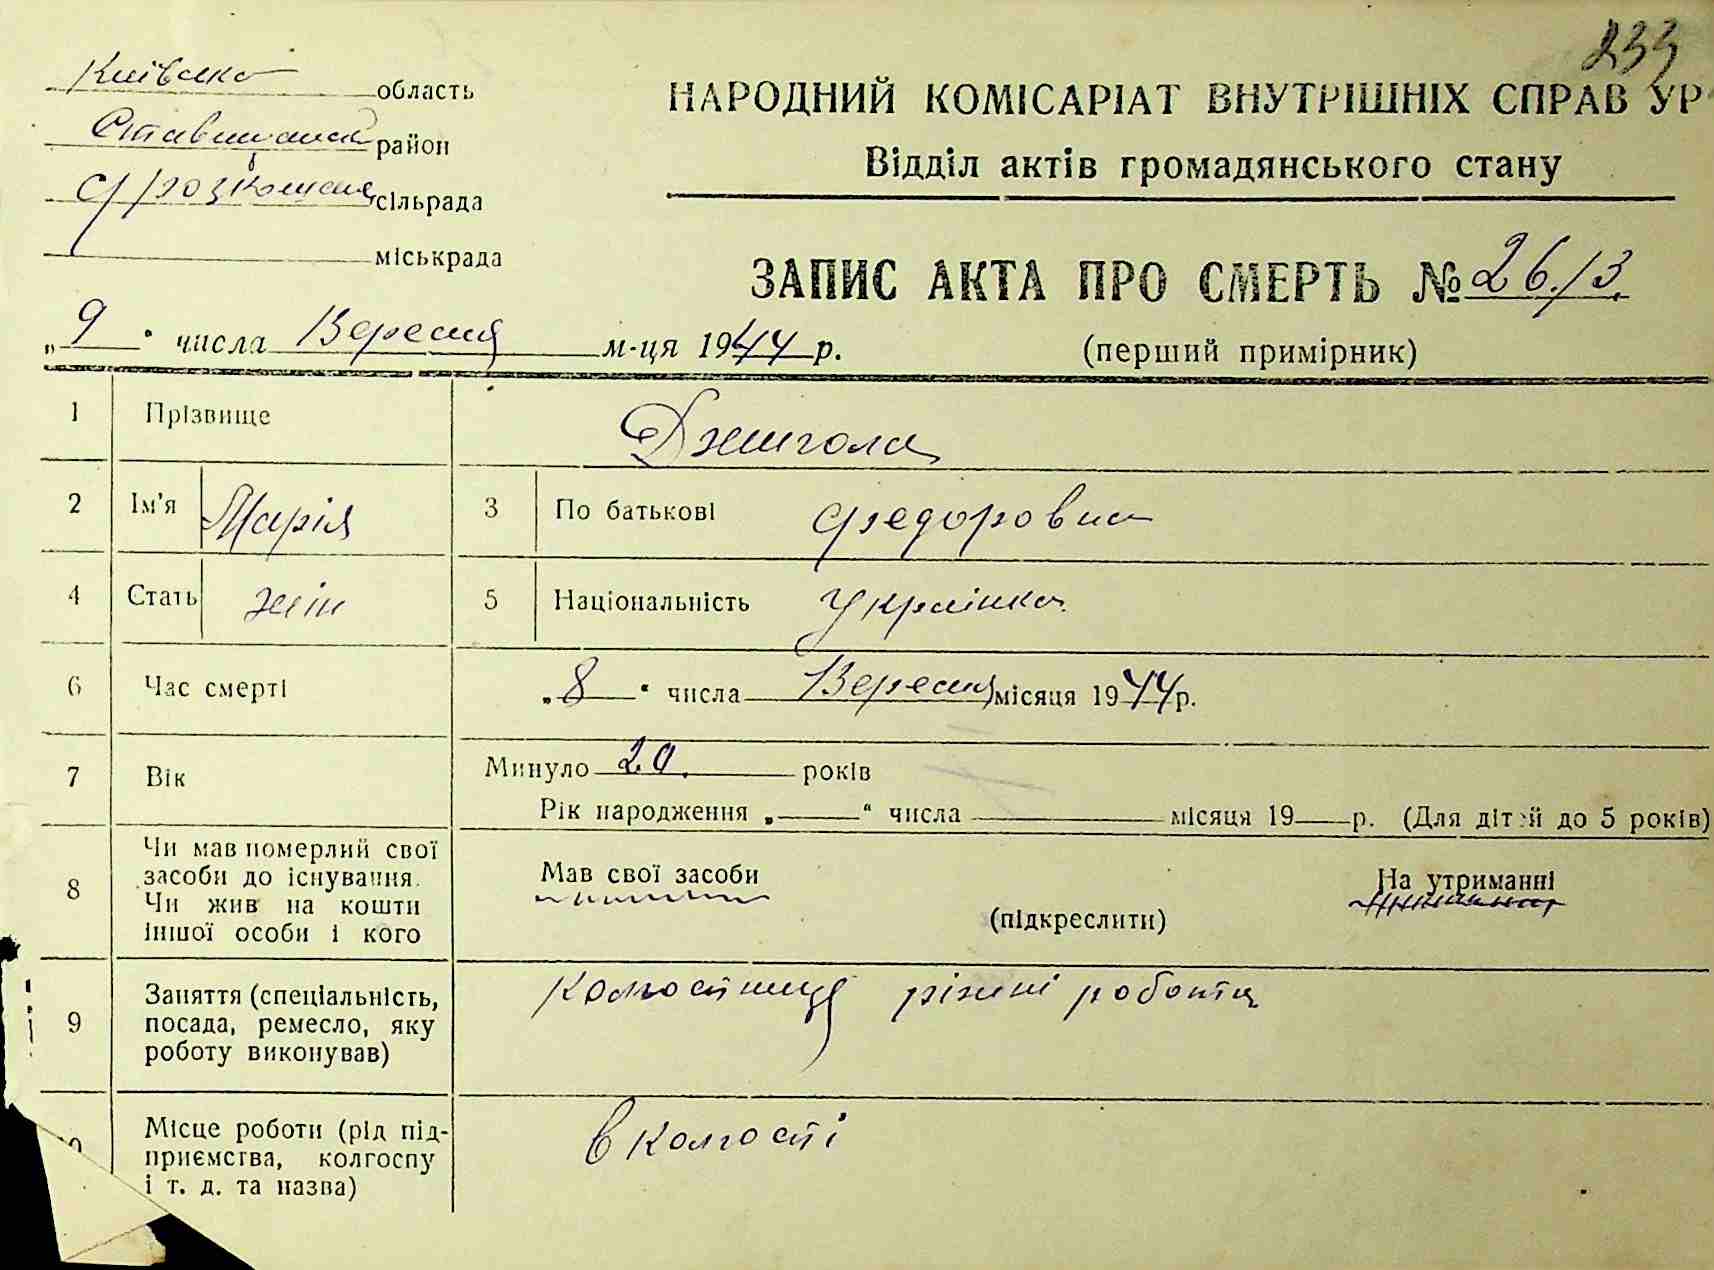 233
Київська область
НАРОДНИЙ КОМІСАРІАТ ВНУТРІШНІХ СПРАВ УР
Ставищанськ район
Відділ актів громадянського стану
сільрада
міськрада
ЗАПИС АКТА ПРО СМЕРТЬ № 26/3.
„9“ числа Вересня м-ця 1944 р.
(перший примірник)
1 Прізвище Джигола
2 Ім'я Марія 3 По батькові Федоровна
4 Стать жін 5 Національність Українка
6 Час смерті „8“ числа Вересня місяця 1944 р.
7 Вік Минуло 20. років
Рік народження „ “ числа місяця 19 р. (Для дітей до 5 років)
8 Чи мав померлий свої засоби до існування.
Чи жив на кошти іншої особи і кого
Мав свої засоби (підкреслити) На утриманні
9 Заняття (спеціальність, посада, ремесло, яку роботу виконував)
різні роботи
Місце роботи (рід підприємства, колгоспу і т. д. та назва)
в колгоспі